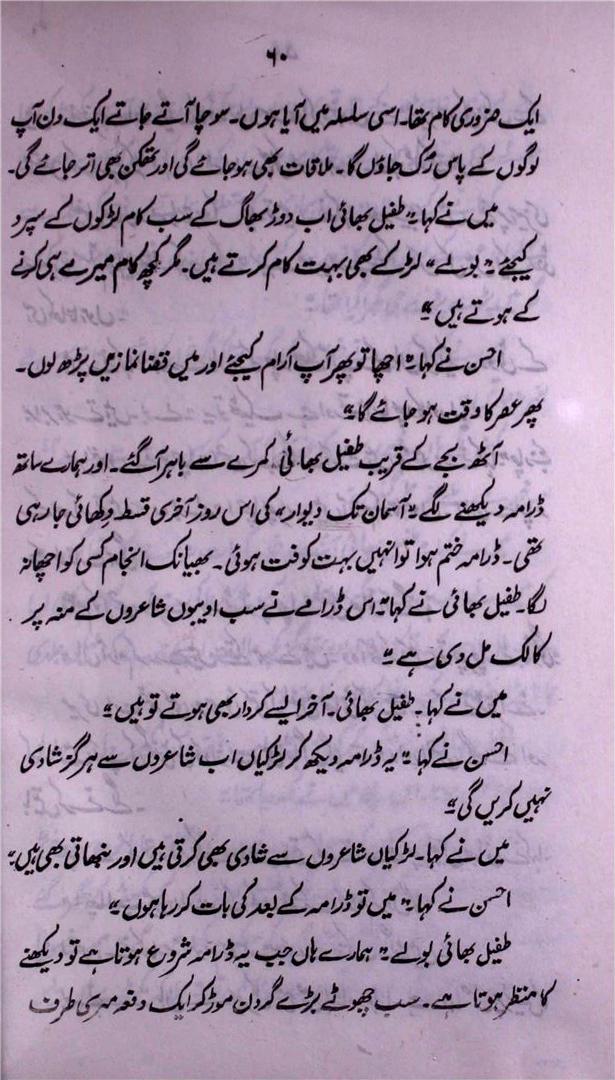 ۶۰
ایک ضروری کام تھا۔ اسی سلسلہ میں آیا ہوں۔ سوچا آتے جاتے ایک دن آپ
لوگوں کے پاس رُک جاؤں گا۔ ملاقات بھی ہو جائے گی اور تھکن بھی اتر جائے گی۔
میں نے کہا "طفیل بھائی اب دوڑ بھاگ کے سب کام لڑکوں کے سپرد
کیجئے" بولے "لڑکے بھی بہت کام کرتے ہیں۔ مگر کچھ کام میرے ہی کرنے
کے ہوتے ہیں"
احسن نے کہا "اچھا تو پھر آپ آرام کیجئے اور میں قضا نمازیں پڑھ لوں۔
پھر عصر کا وقت ہو جائے گا"
آٹھ بجے کے قریب طفیل بھائی کمرے سے باہر آ گئے۔ اور ہمارے ساتھ
ڈرامہ دیکھنے لگے "آسمان تک دیوار" کی اس روز آخری قسط دِکھائی جا رہی
تھی۔ ڈرامہ ختم ہوا تو انہیں بہت کوفت ہوئی۔ بھیانک انجام کسی کو اچھا نہ
لگا۔ طفیل بھائی نے کہا "اس ڈرامے نے سب ادیبوں شاعروں کے منہ پر
کالک مل دی ہے"
میں نے کہا۔ طفیل بھائی۔ آخر ایسے کردار بھی ہوتے تو ہیں"
احسن نے کہا "یہ ڈرامہ دیکھ کر لڑکیاں اب شاعروں سے ہرگز شادی
نہیں کریں گی"
میں نے کہا۔ لڑکیاں شاعروں سے شادی بھی کرتی ہیں اور نبھاتی بھی ہیں"
احسن نے کہا۔ "میں تو ڈرامہ کے بعد کی بات کر رہا ہوں"
طفیل بھائی بولے "ہمارے ہاں جب یہ ڈرامہ شروع ہوتا ہے تو دیکھنے
کا منظر ہوتا ہے۔ سب چھوٹے بڑے گردن موڑ کر ایک دفعہ میری طرف